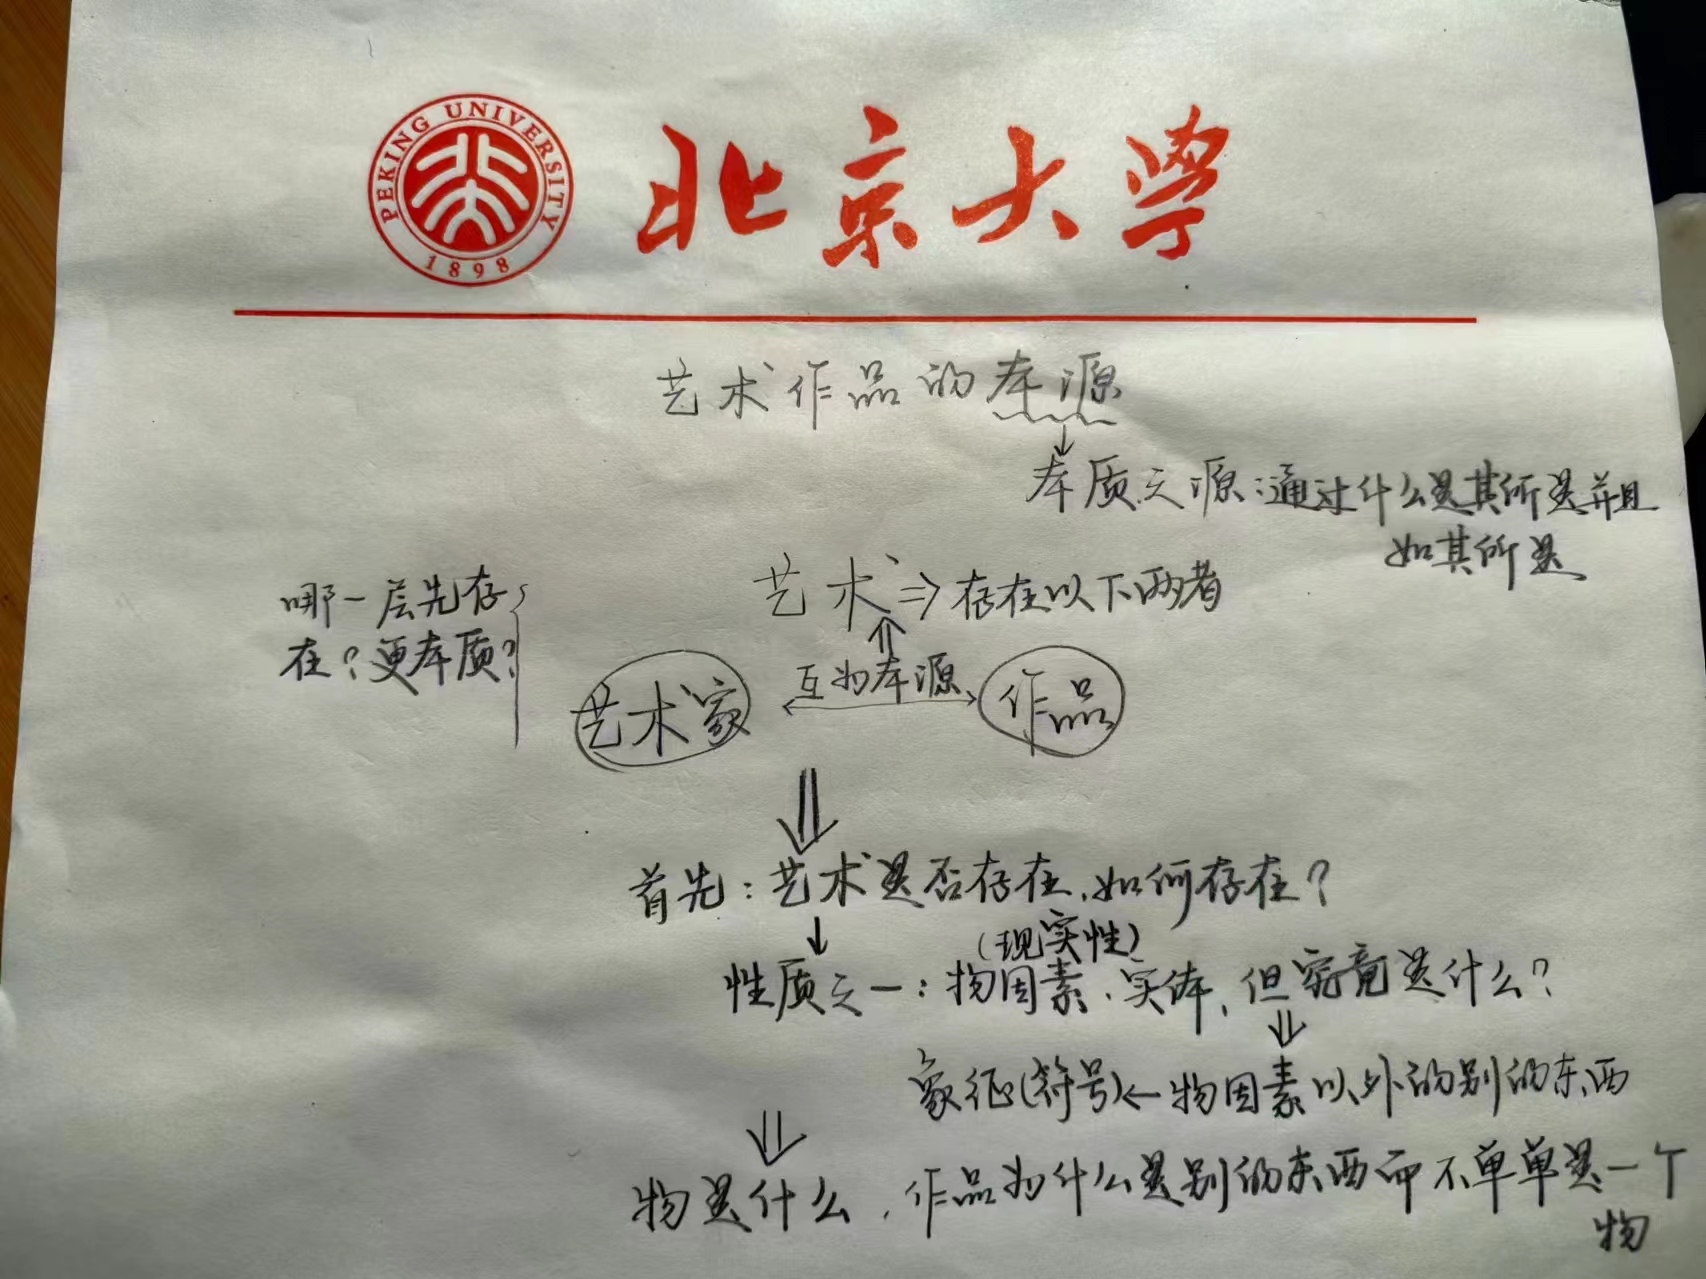 PEKING UNIVERSITY
1898
北京大学
艺术作品的本源
↓
本质之源:通过什么是其所是并且
如其所是
哪一层先存
在?更本质?
艺术⇒存在以下两者
⇑
互为本源
艺术家 ↔ 作品
⇓
首先:艺术是否存在、如何存在?
↓
(现实性)
性质之一:物因素、实体,但究竟是什么?
⇓
象征(符号)←物因素以外的别的东西
⇓
物是什么,作品为什么是别的东西而不单单是一个
物